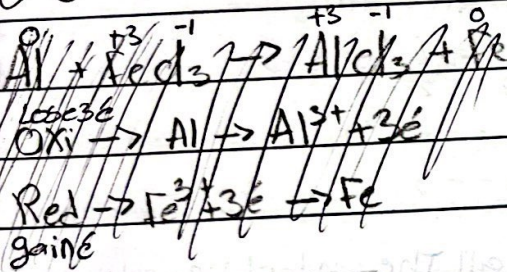 0 +3 -1 +3 -1 0
Al + FeCl3 → AlCl3 + Fe
Lose 3é
OXi → Al → Al3+ + 3é
Red → Fe3+ + 3é → Fe
gain é